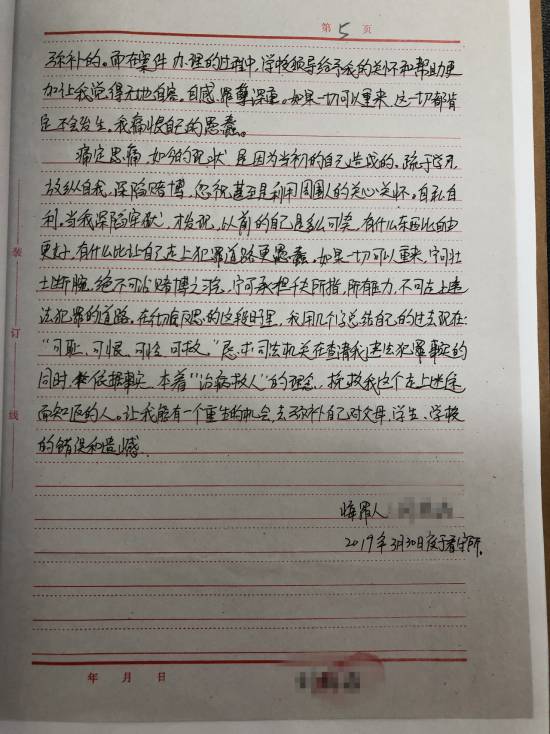 第 5 页
弥补的。而在案件办理的过程中，学校领导给予我的关怀和帮助更
加让我觉得无地自容。自感罪孽深重。如果一切可以重来，这一切都肯
定不会发生。我痛恨自己的愚蠢。
痛定思痛，如今的现状是因为当初的自己造成的。疏于学习，
放纵自我，深陷赌博，忽视甚至是利用周围人的关心关怀。自私自
利。当我深陷牢狱，才发现，以前的自己是多么可笑，有什么东西比自由
更好，有什么比让自己走上犯罪道路更愚蠢。如果一切可以重来，宁可壮
士断腕，绝不可沾赌博之恶。宁可承担千夫所指，所有压力，不可走上违
法犯罪的道路。在彻底反思的这段日子里，我用几个字总结自己的过去现在：
“可耻、可恨、可怜、可救。”恳求司法机关在查清我违法犯罪事实的
同时，依据事实，本着“治病救人”的理念，挽救我这个走上迷途
而知返的人。让我能有一个重生的机会，去弥补自己对父母、学生、学校
的错误和遗憾。
悔罪人
2019年3月30日夜于看守所。
年 月 日
装
订
线